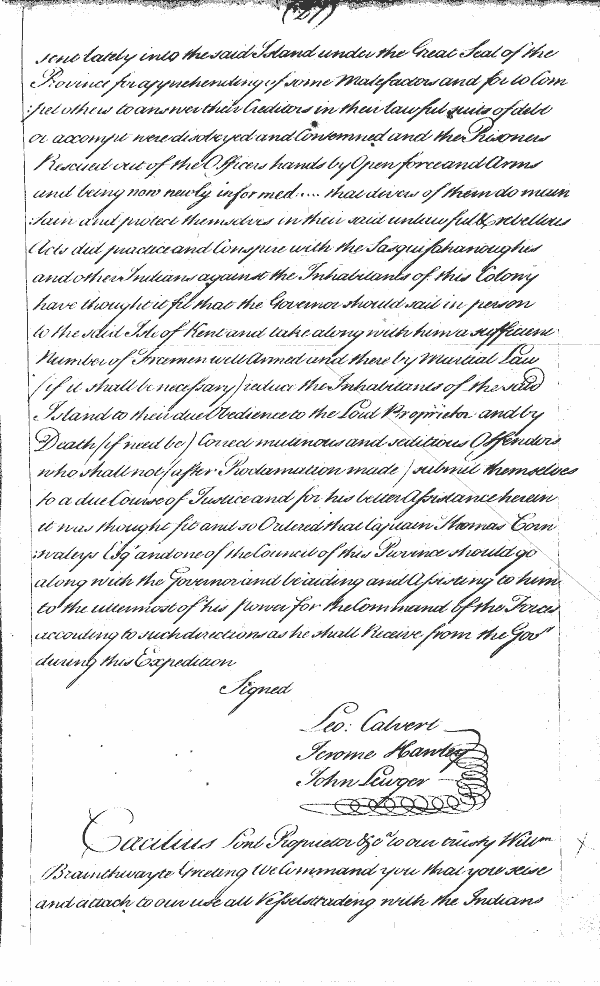 (27)
sent lately into the said Island under the Great Seal of the
Province for apprehending of some Malefactors and for to Com
pel others to answer their Creditors in their lawful suits of debt
or accompt were disobeyed and Contemned and the Prisoners
Rescued out of the Officers hands by Open force and Arms
and being now newly informed.... that divers of them do main
tain and protect themselves in their said unlawful & rebellious
Acts did practice and Conspire with the Sasquisahanoughes
and other Indians against the Inhabitants of this Colony
have thought it fit that the Governor should sail in person
to the said Isle of Kent and take along with him a sufficient
Number of Freemen well Armed and there by Martial Law
(if it shall be necessary) reduce the Inhabitants of the said
Island to their due Obedience to the Lord Proprietor and by
Death (if need be) Correct mutinous and seditious Offenders
who shall not (after Proclamation made) submit themselves
to a due Course of Justice and for his better Assistance herein
it was thought fit and so Ordered that Captain Thomas Corn
waleys Esqr. and one of the Council of this Province should go
along with the Governor and be aiding and Assisting to him
to the uttermost of his power for the Command of the Forces
according to such directions as he shall Receive from the Govr
during this Expedition
Signed
Leo: Calvert
Jerome Hawley
John Lewger
Cæcilius Lord Proprietor &ca to our trusty Willm
Brainthwayte Greeting We Command you that you seise
and attach to our use all Vessels trading with the Indians